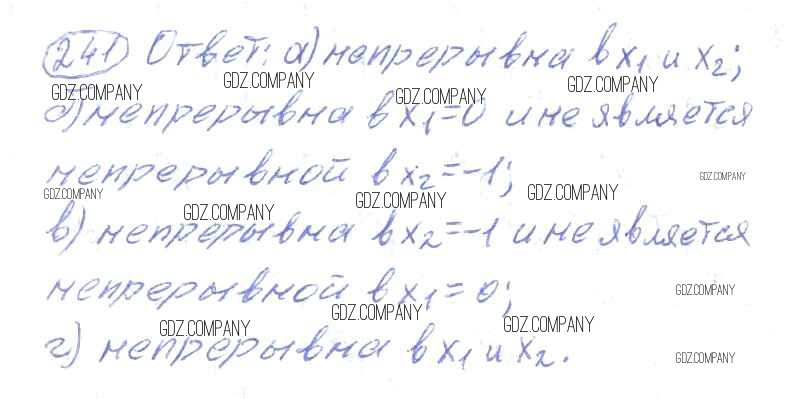 241 Ответ: а) непрерывна в x₁ и x₂;
GDZ.COMPANY GDZ.COMPANY GDZ.COMPANY GDZ.COMPANY
б) непрерывна в x₁=0 и не является
непрерывной в x₂=-1;
GDZ.COMPANY
GDZ.COMPANY GDZ.COMPANY GDZ.COMPANY GDZ.COMPANY
в) непрерывна в x₂=-1 и не является
непрерывной в x₁=0;
GDZ.COMPANY
GDZ.COMPANY GDZ.COMPANY GDZ.COMPANY
г) непрерывна в x₁ и x₂.
GDZ.COMPANY